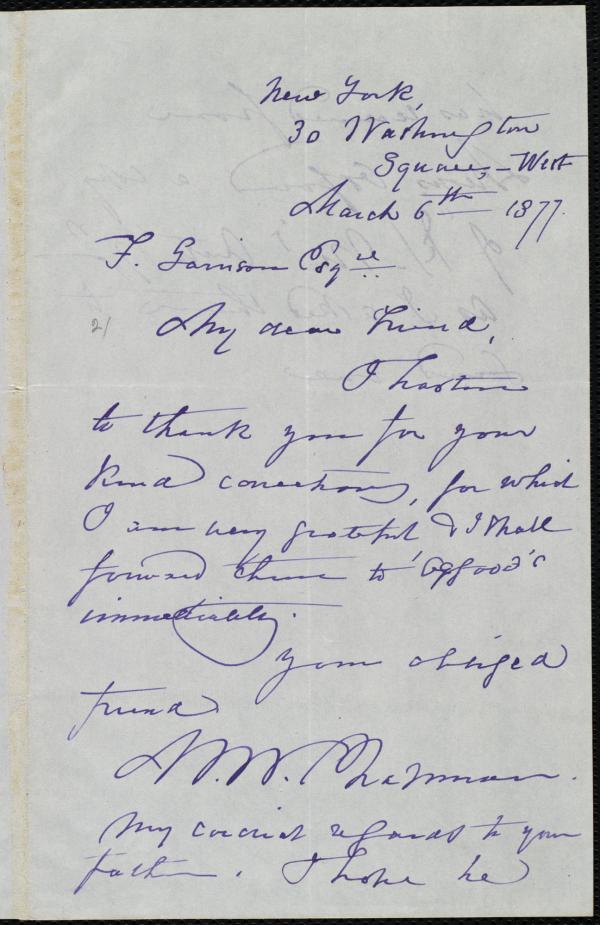 New York,
30 Washington
Square, - West
March 6th 1877.
F. Garrison Esqre
2/
My dear Friend,
I hasten
to thank you for your
kind corrections, for which
I am very grateful & I shall
forward them to Osgood's
immediately.
Your obliged
friend
M. W. Chapman.
My cordial regards to your
father. I hope he